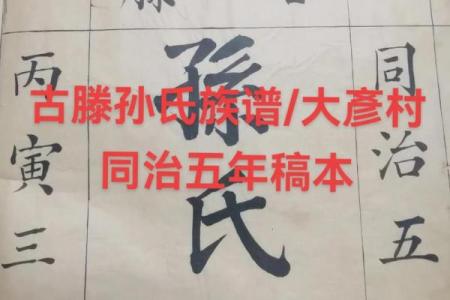 古滕孙氏族谱/大彥村
同治五年稿本
同治五
孫氏
丙寅三